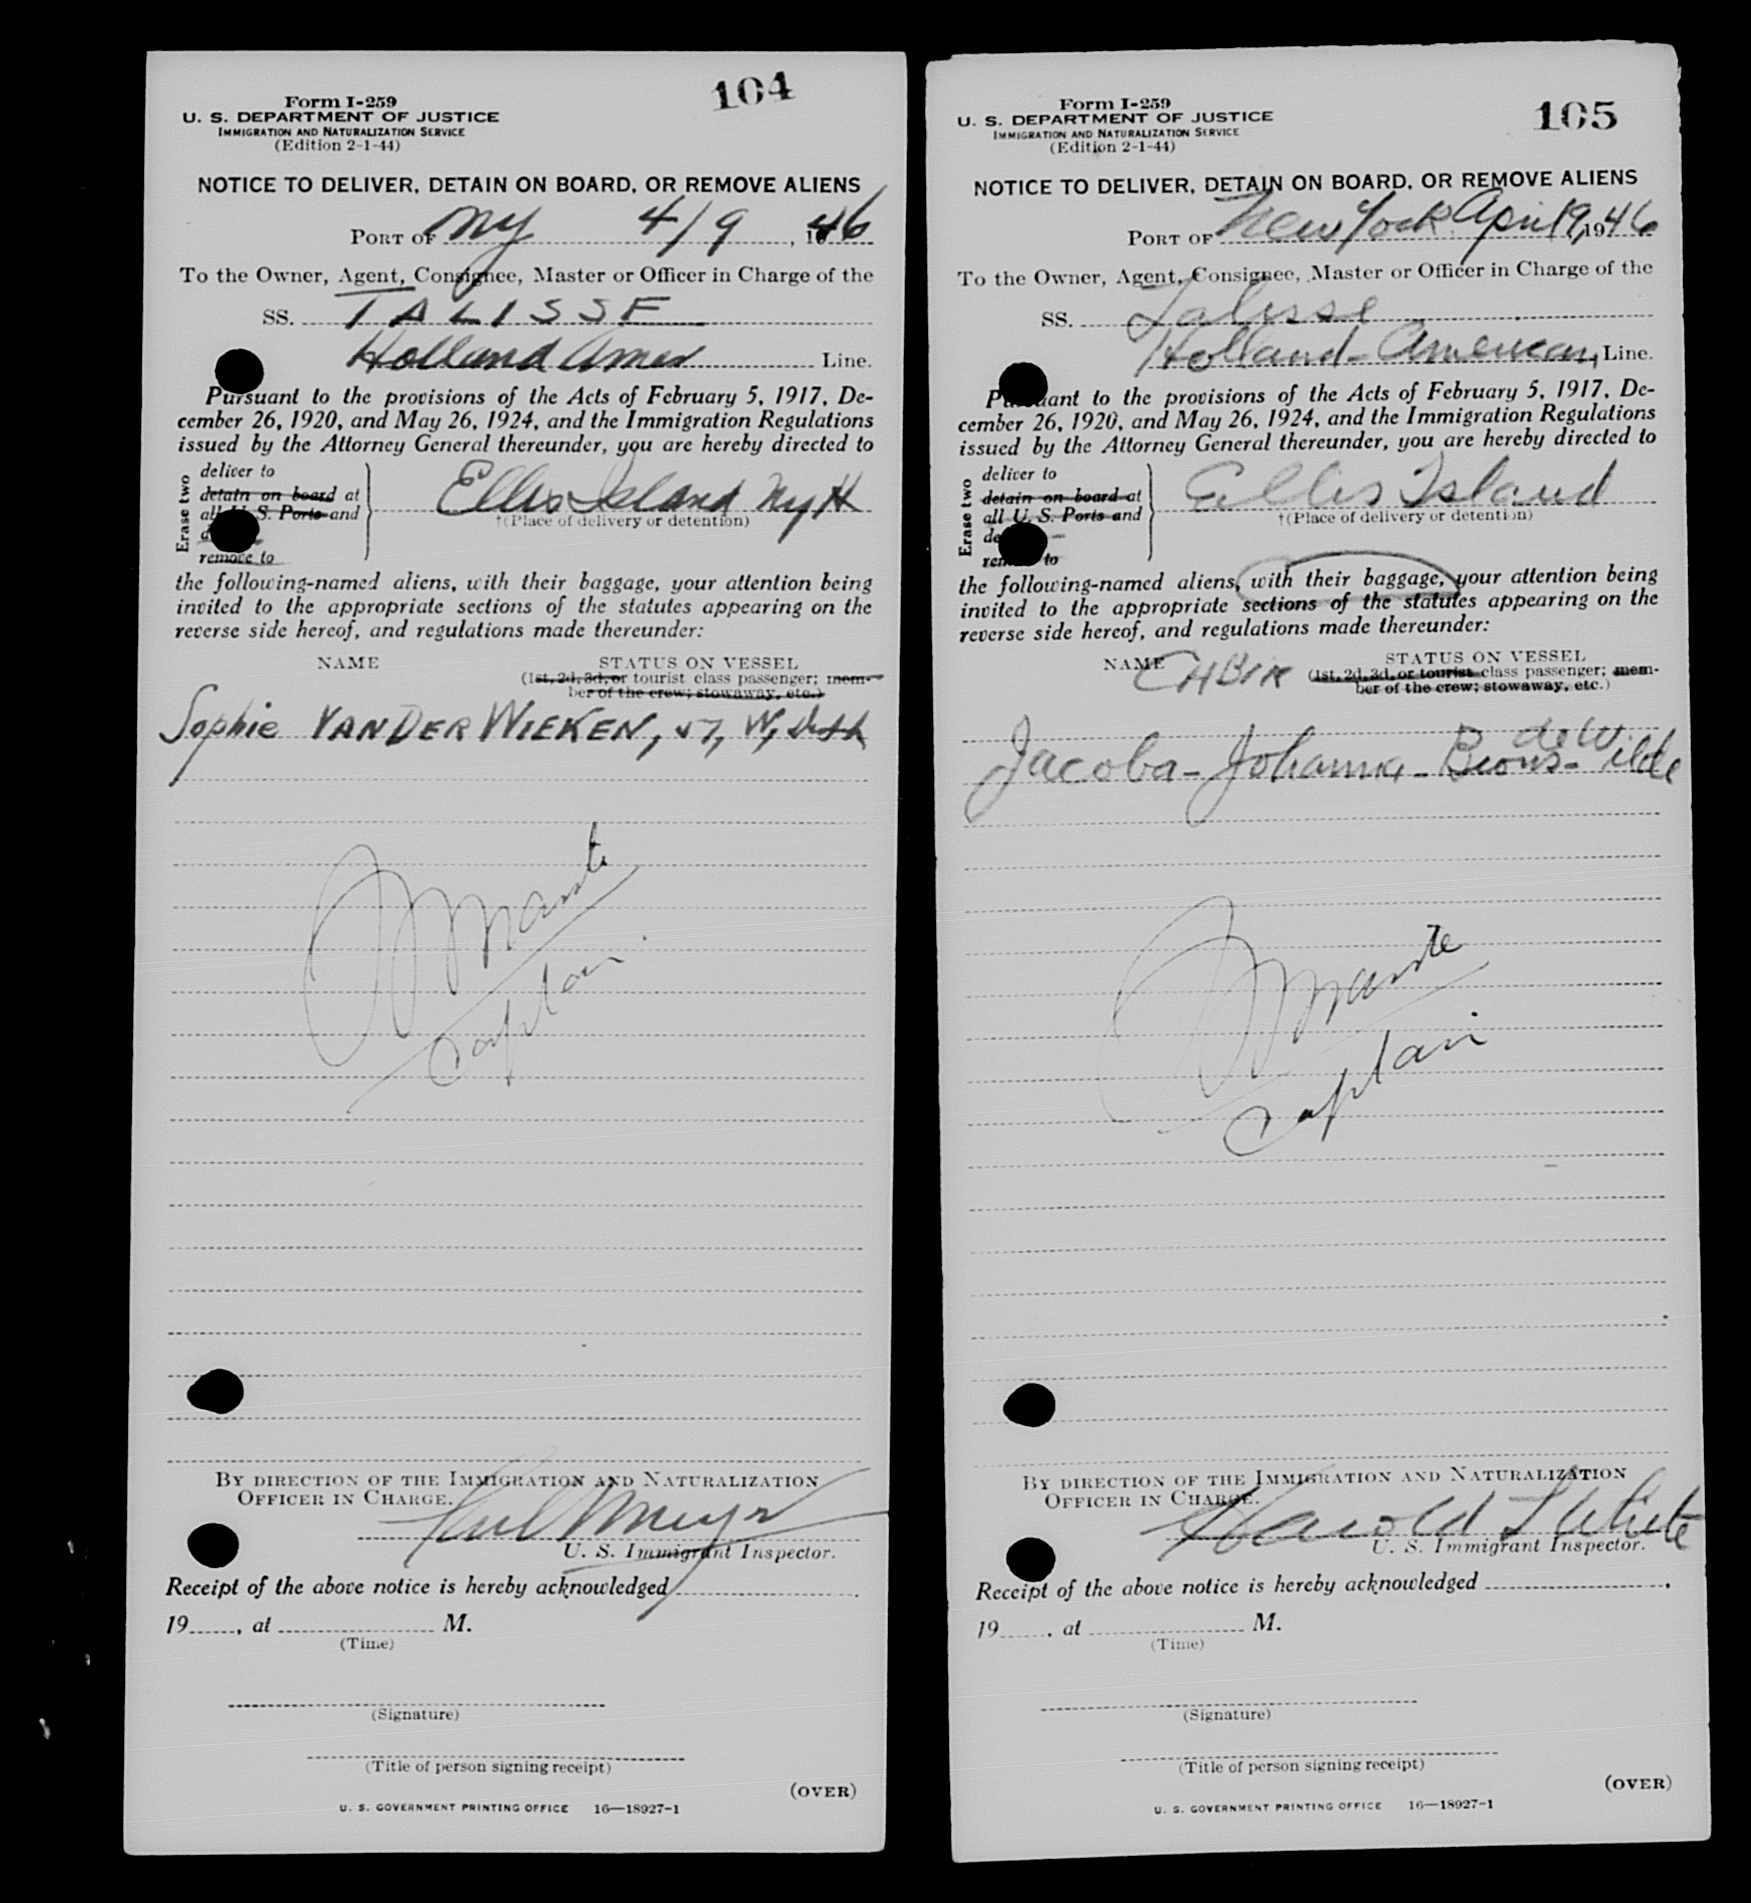 104
Form I-259
U. S. DEPARTMENT OF JUSTICE
IMMIGRATION AND NATURALIZATION SERVICE
(Edition 2-1-44)
NOTICE TO DELIVER, DETAIN ON BOARD, OR REMOVE ALIENS
PORT OF NY 4/9, 1946
To the Owner, Agent, Consignee, Master or Officer in Charge of the
SS. TALISSE
Holland Amer Line.
Pursuant to the provisions of the Acts of February 5, 1917, De-
cember 26, 1920, and May 26, 1924, and the Immigration Regulations
issued by the Attorney General thereunder, you are hereby directed to
Erase two
deliver to
detain on board at
all U. S. Ports and
remove to
Ellis Island NYH
†(Place of delivery or detention)
the following-named aliens, with their baggage, your attention being
invited to the appropriate sections of the statutes appearing on the
reverse side hereof, and regulations made thereunder:
NAME STATUS ON VESSEL
(1st, 2d, 3d, or tourist class passenger; mem-
ber of the crew; stowaway, etc.)
Sophie VAN DER WIEKEN, 57, W, Dutch
Captain
BY DIRECTION OF THE IMMIGRATION AND NATURALIZATION
OFFICER IN CHARGE.
U. S. Immigrant Inspector.
Receipt of the above notice is hereby acknowledged
19 , at M.
(Time)
(Signature)
(Title of person signing receipt)
(OVER)
U. S. GOVERNMENT PRINTING OFFICE 16—18927-1
105
Form I-259
U. S. DEPARTMENT OF JUSTICE
IMMIGRATION AND NATURALIZATION SERVICE
(Edition 2-1-44)
NOTICE TO DELIVER, DETAIN ON BOARD, OR REMOVE ALIENS
PORT OF New York April 9, 1946
To the Owner, Agent, Consignee, Master or Officer in Charge of the
SS. Talisse
Holland-American, Line.
Pursuant to the provisions of the Acts of February 5, 1917, De-
cember 26, 1920, and May 26, 1924, and the Immigration Regulations
issued by the Attorney General thereunder, you are hereby directed to
Erase two
deliver to
detain on board at
all U. S. Ports and
remove to
Ellis Island
†(Place of delivery or detention)
the following-named aliens, with their baggage, your attention being
invited to the appropriate sections of the statutes appearing on the
reverse side hereof, and regulations made thereunder:
NAME STATUS ON VESSEL
(1st, 2d, 3d, or tourist class passenger; mem-
ber of the crew; stowaway, etc.)
de W
Jacoba-Johanna- Wilde
Captain
BY DIRECTION OF THE IMMIGRATION AND NATURALIZATION
OFFICER IN CHARGE.
Harold White
U. S. Immigrant Inspector.
Receipt of the above notice is hereby acknowledged .
19 , at M.
(Time)
(Signature)
(Title of person signing receipt)
(OVER)
U. S. GOVERNMENT PRINTING OFFICE 16—18927-1